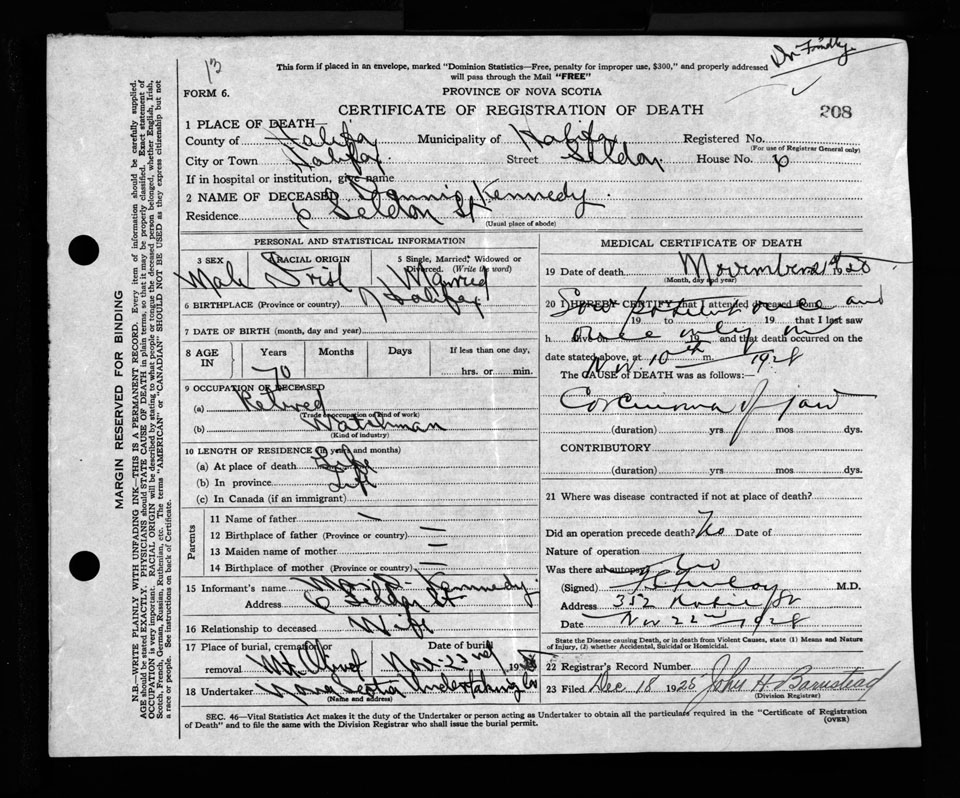 13
Dr Findlay
This form if placed in an envelope, marked "Dominion Statistics—Free, penalty for improper use, $300," and properly addressed
will pass through the Mail "FREE"
FORM 6.
PROVINCE OF NOVA SCOTIA
CERTIFICATE OF REGISTRATION OF DEATH
208
1 PLACE OF DEATH—
County of Halifax Municipality of Halifax Registered No.
(For use of Registrar General only)
City or Town Halifax Street Seldon House No. 6
If in hospital or institution, give name
2 NAME OF DECEASED Dennis Kennedy
Residence 6 Seldon St
(Usual place of abode)
PERSONAL AND STATISTICAL INFORMATION
3 SEX RACIAL ORIGIN 5 Single, Married, Widowed or
Divorced. (Write the word)
Male Irish Married
6 BIRTHPLACE (Province or country) Halifax
7 DATE OF BIRTH (month, day and year)
8 AGE IN Years Months Days If less than one day,
70 hrs. or min.
9 OCCUPATION OF DECEASED
(a) Retired
(Trade, occupation or kind of work)
(b) Watchman
(Kind of industry)
10 LENGTH OF RESIDENCE (in years and months)
(a) At place of death Life
(b) In province Life
(c) In Canada (if an immigrant)
Parents
11 Name of father —
12 Birthplace of father (Province or country) —
13 Maiden name of mother —
14 Birthplace of mother (Province or country) —
15 Informant's name Kennedy
Address 6 Seldon St
16 Relationship to deceased Wife
17 Place of burial, cremation or Date of burial
removal Mt Olivet Nov. 23rd 19
18 Undertaker Nova Scotia Undertaking Co
(Name and address)
MEDICAL CERTIFICATE OF DEATH
19 Date of death November
(Month, day and year)
20 I HEREBY CERTIFY that I attended deceased from
Saw patient once and
19 to 19 that I last saw
once only
h alive 19 and that death occurred on
date stated above, at m.
Nov. 10th 1928
The CAUSE OF DEATH was as follows:—
Carcinoma of jaw
(duration) yrs. mos. dys.
CONTRIBUTORY
(duration) yrs. mos. dys.
21 Where was disease contracted if not at place of death?
Did an operation precede death? No Date of
Nature of operation
Was there an autopsy? No
(Signed) M.D.
Address 352 Robie St
Date Nov 22nd 1928
State the Disease causing Death, or in death from Violent Causes, state (1) Means and Nature
of Injury, (2) whether Accidental, Suicidal or Homicidal.
22 Registrar's Record Number
23 Filed Dec 18 1928 John H Barnstead
(Division Registrar)
SEC. 46—Vital Statistics Act makes it the duty of the Undertaker or person acting as Undertaker to obtain all the particulars required in the "Certificate of Registration
of Death" and to file the same with the Division Registrar who shall issue the burial permit.
(OVER)
MARGIN RESERVED FOR BINDING
N.B.—WRITE PLAINLY WITH UNFADING INK—THIS IS A PERMANENT RECORD. Every item of information should be carefully supplied.
AGE should be stated EXACTLY. PHYSICIANS should STATE CAUSE OF DEATH in plain terms, so that it may be properly classified. Exact statement of
OCCUPATION is very important. RACIAL ORIGIN will be described by stating to what people or tongue the deceased person belonged, whether English, Irish,
Scotch, French, German, Russian, Ruthenian, etc. The terms "AMERICAN" or "CANADIAN" SHOULD NOT BE USED as they express citizenship but not
a race or people. See instructions on back of Certificate.